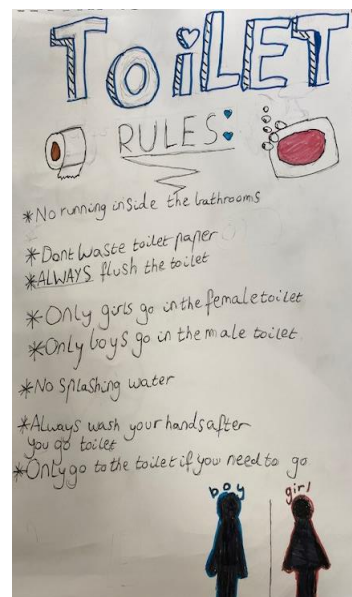 TOiLET
RULES:
*No running inside the bathrooms
*Dont waste toilet paper
*ALWAYS flush the toilet
*Only girls go in the female toilet
*Only boys go in the male toilet
*No splashing water
*Always wash your hands after
you go toilet
*Only go to the toilet if you need to go
boy girl